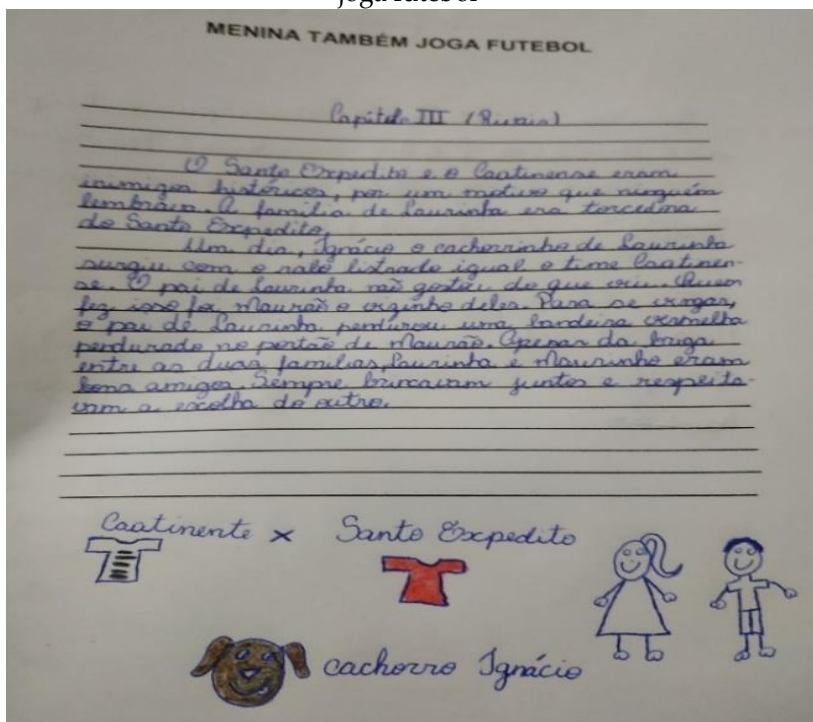 joga futebol
MENINA TAMBÉM JOGA FUTEBOL
Capítulo III (Rivais)
O Santo Expedito e o Caatinense eram
inimigos históricos, por um motivo que ninguém
lembrava. A família de Laurinha era torcedora
do Santo Expedito.
Um dia, Ignácio o cachorrinho de Laurinha
surgiu com o rabo listrado igual o time Caatinen-
se. O pai de Laurinha não gostou do que viu. Quem
fez isso foi Maurão o viginho deles. Para se vingar,
o pai de Laurinha pendurou uma bandeira vermelha
pendurado no portão de Maurão. Apesar da briga
entre as duas famílias, Laurinha e Maurinho eram
bons amigos. Sempre brincavam juntos e respeita-
vam a escolha do outro.
Caatinente x Santo Expedito
cachorro Ignácio